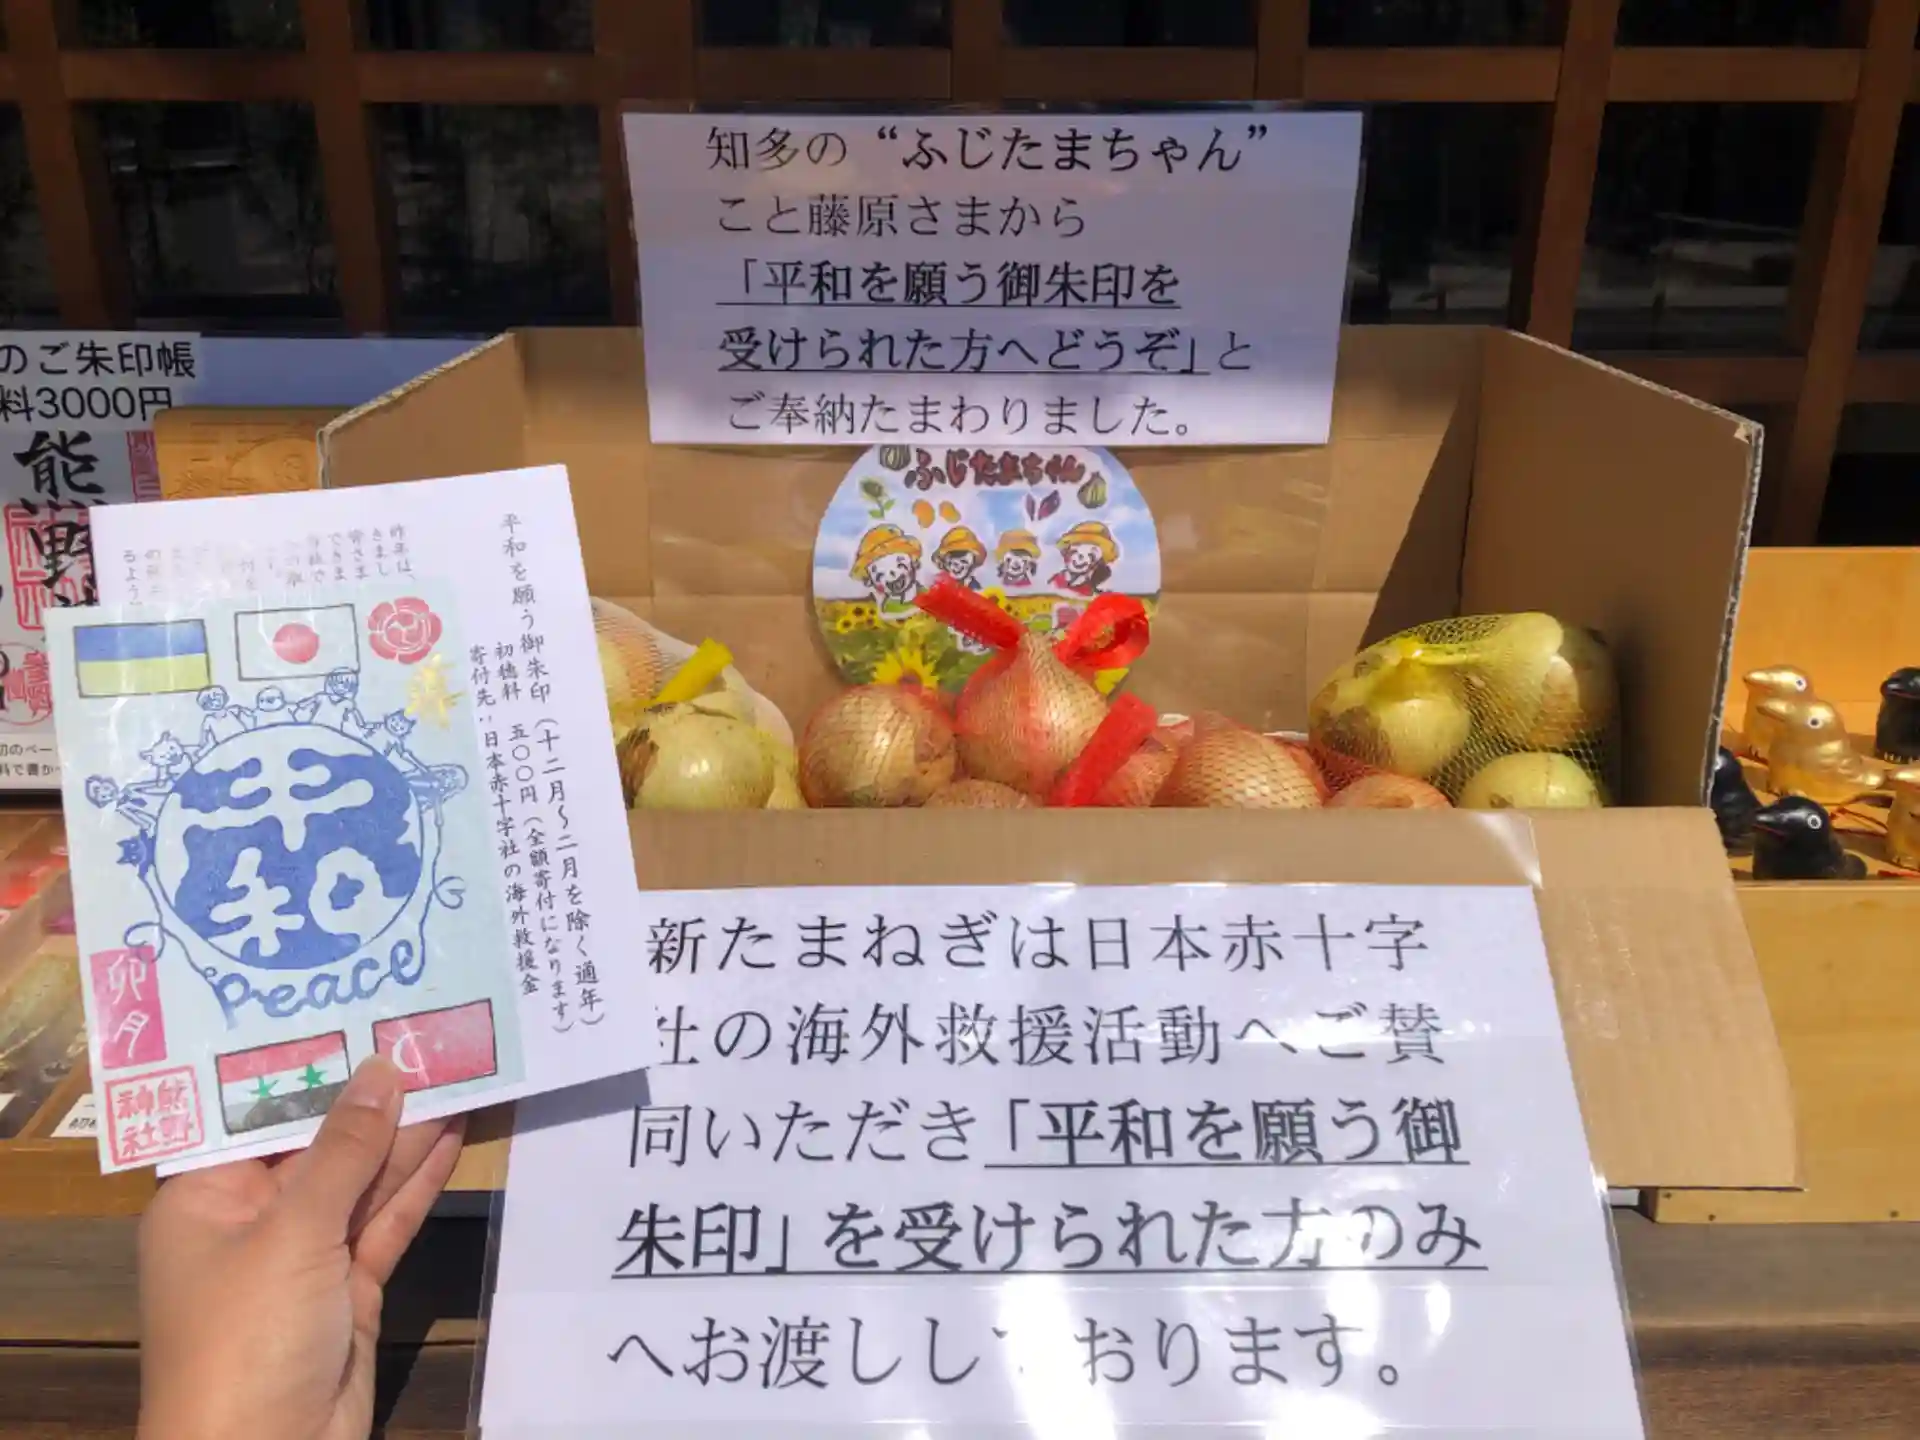 知多の“ふじたまちゃん”
こと藤原さまから
「平和を願う御朱印を
受けられた方へどうぞ」と
ご奉納たまわりました。
ふじたまちゃん
のご朱印帳
料3000円
熊野
平和を願う御朱印（十二月～二月を除く通年）
初穂料 五〇〇円（全額寄付になります）
寄付先：日本赤十字社の海外救援金
昨年は、
きまし
皆さま
できま
平和
Peace
卯月
熊野
神社
新たまねぎは日本赤十字
社の海外救援活動へご賛
同いただき「平和を願う御
朱印」を受けられた方のみ
へお渡しし おります。